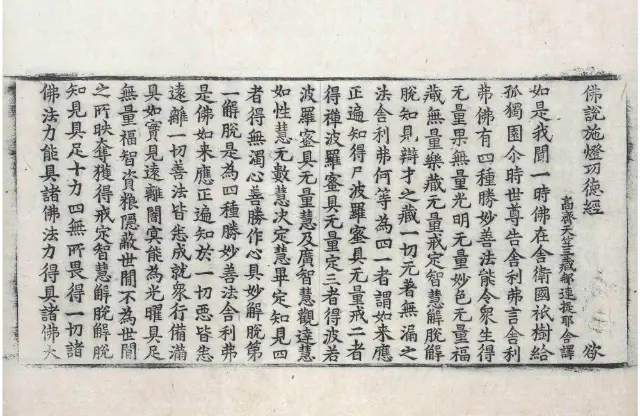 佛說施燈功德經 欲
高齊天竺三藏那連提耶舍譯
如是我聞一時佛在舍衛國祇樹給
孤獨園尒時世尊告舍利弗言舍利
弗佛有四種勝妙善法能令衆生得
无量果無量光明无量妙色无量福
藏無量樂藏无量戒定智慧解脫解
脫知見辯才之藏一切无著無漏之
法舍利弗何等為四一者謂如來應
正遍知得尸波羅蜜具无量戒二者
得禪波羅蜜具无量定三者得波若
波羅蜜具无量慧及廣智慧觀達慧
如性慧无數慧決定慧畢定知見四
者得無濁心善勝作心具妙解脫第
一解脫是為四種勝妙善法舍利弗
是佛如來應正遍知於一切惡皆悉
遠離一切善法皆悉成就衆行備滿
具如實見遠離闇冥能為光曜具足
無量福智資粮隱蔽世間不為世間
之所映奪獲得戒定智慧解脫解脫
知見具足十力四無所畏得一切諸
佛法力能具諸佛法力得具諸佛大